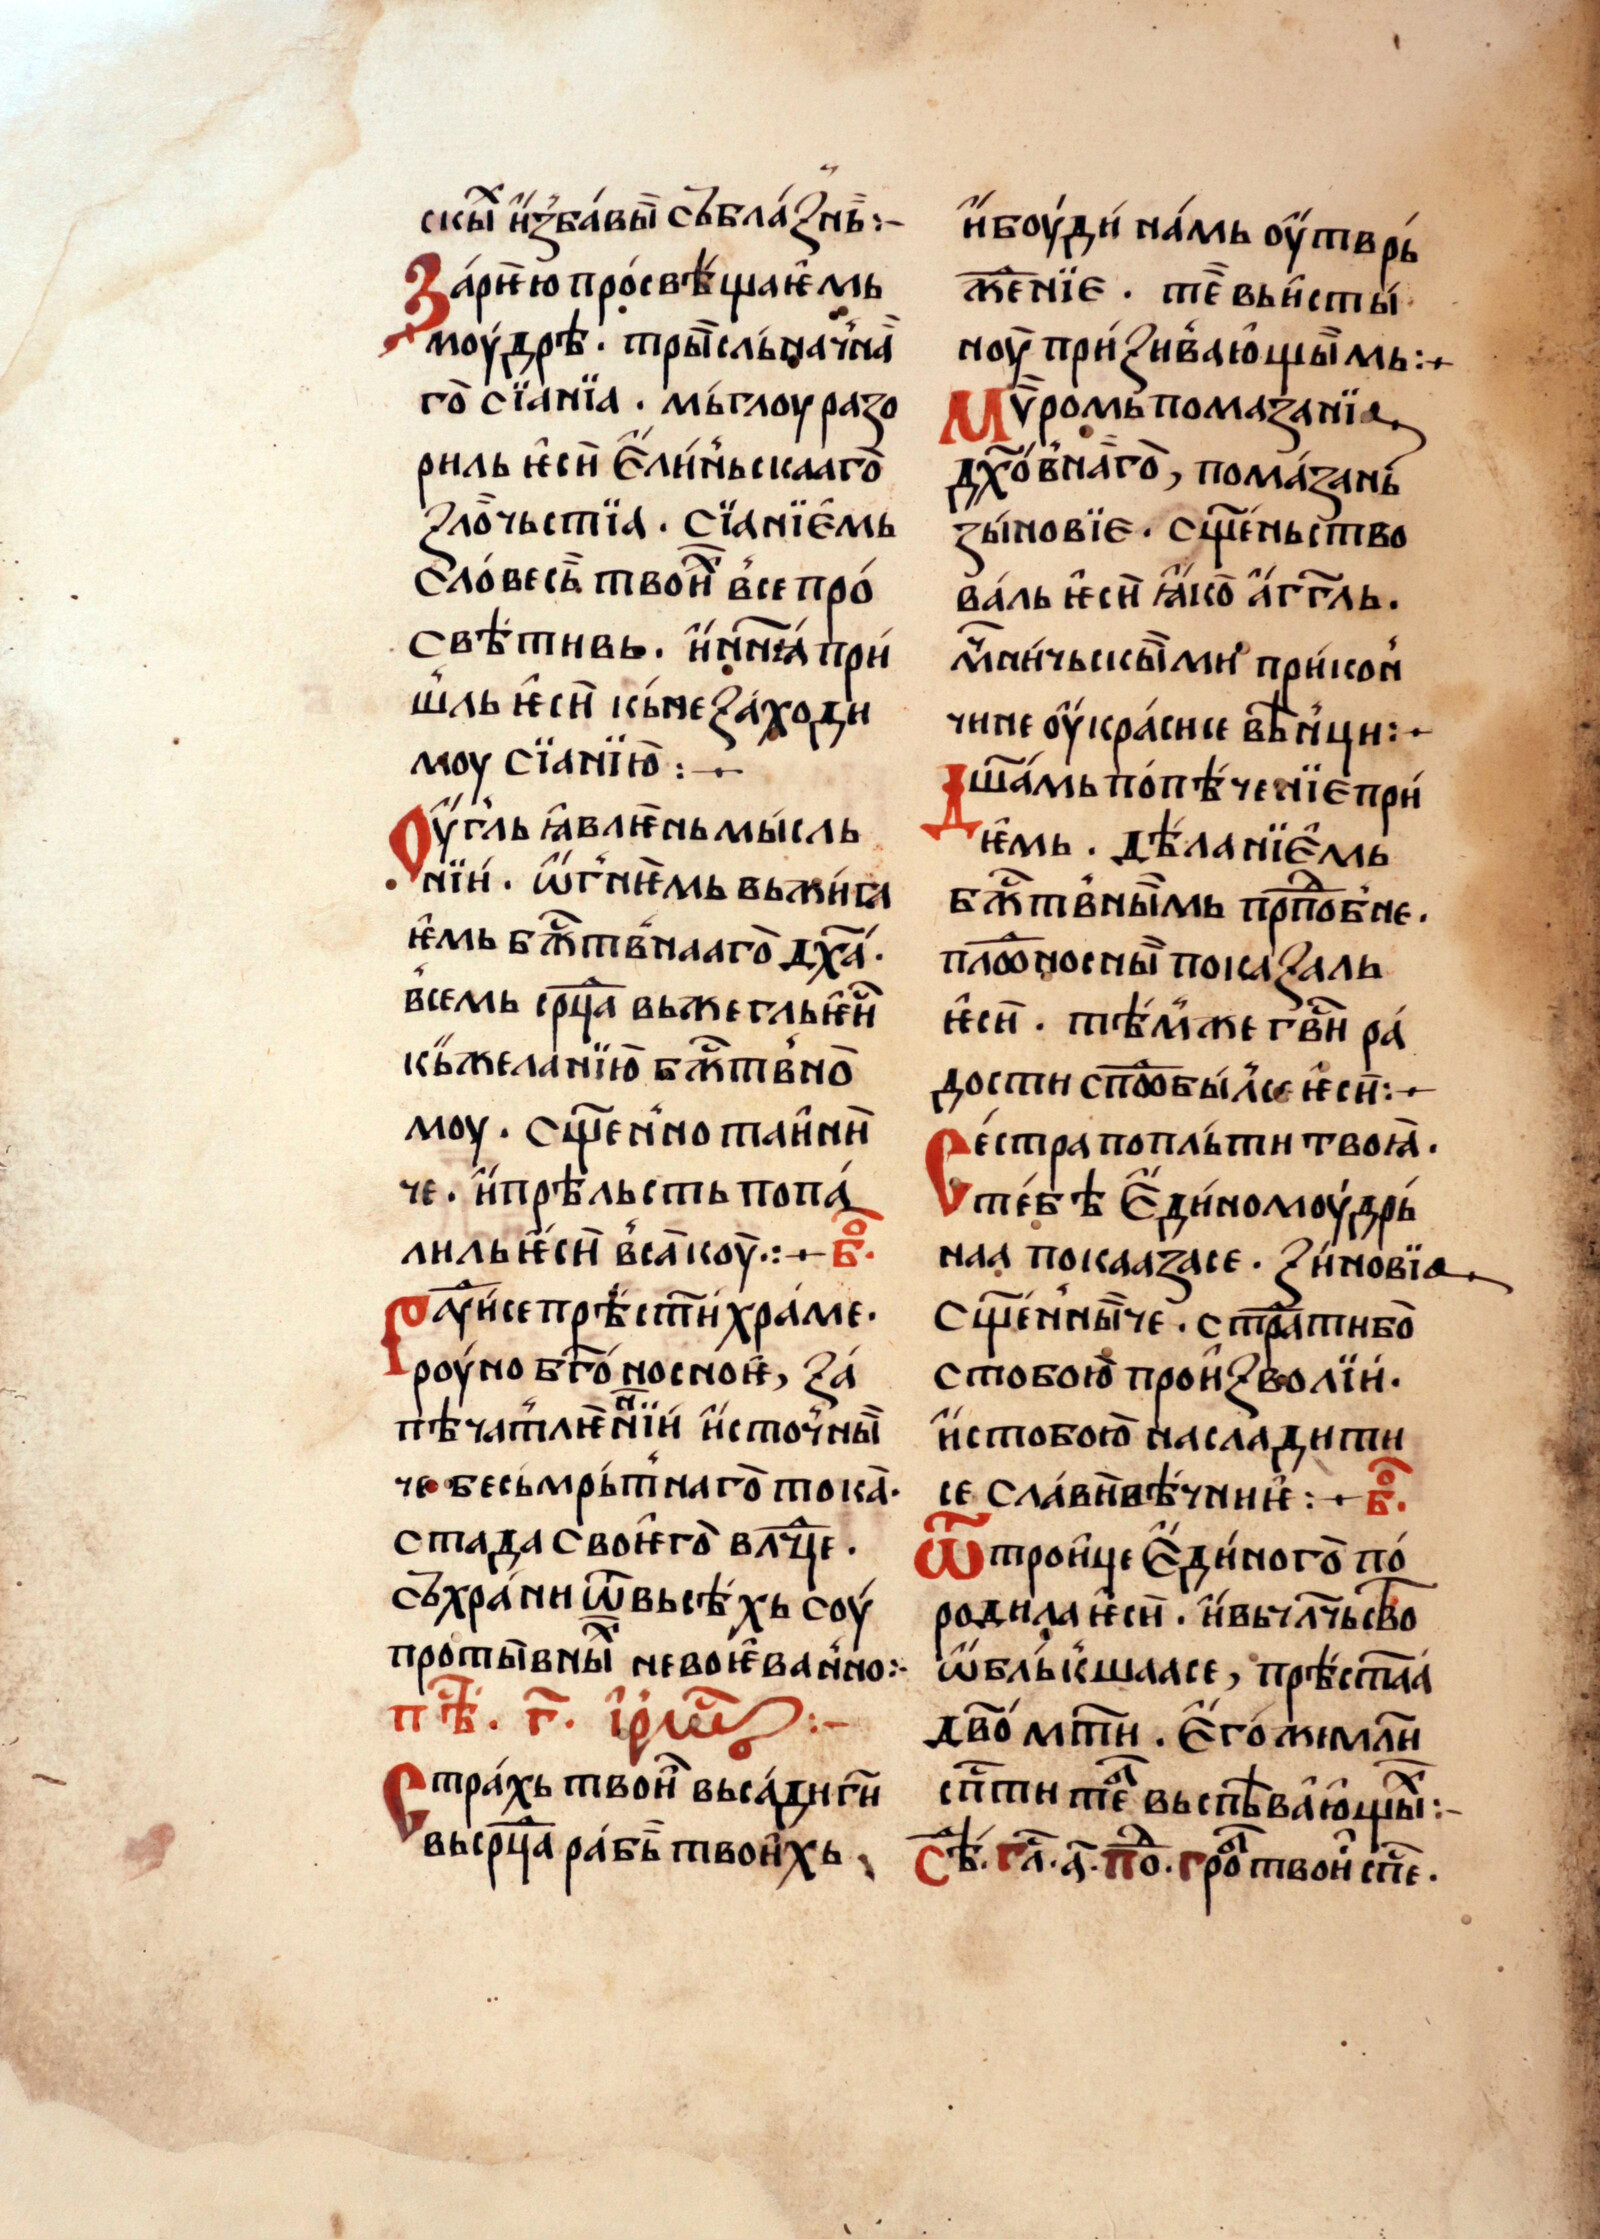 скыⷯ и҆ꙁба́выⷭ събла́ꙁнь꙼:–
За́рѥю про́свѣщаѥ҆мь
моу́дрѣ · тры́сльнач꙼на
го сїанїа · мьглоу раꙁо
риль ѥ҆си е҆ли́н꙼ьскааго
ꙁло́чьстїа · сїанїе҆мь
слове́сь твоиⷯ в꙼се про́
свѣтивь · и҆ нн҃ꙗ при́
ш꙼ль ѥ҆си кь не ꙁа́ходи
моу сїанїю :–
Оу҆́гль ꙗ҆влѥнь мы́сль
нїи · ѡ҆г꙼нѥмь вьжи́га
ѥ҆мь бж҃тв꙼нааго дх҃а ·
в꙼семь срⷣца вьжегль ѥ҆си
кь желанїю бж҃тв꙼но
моу · сщ҃ен꙼но таи҆нни
че · и҆ прѣльсть попа́
лиль ѥ҆си в꙼сакоу · :– б҃оⷣ·
Раⷣуи́се прѣст҃и хра́ме ·
роу́но бг҃оносноѥ, ꙁа́
пѣчат꙼лѥ꙼н꙼нїи и҆сточ꙼ны
че бесьмрьт꙼наго тока ·
стада своѥго влⷣчце ·
съхра́ни ѿ вьсѣ́хь соу́
противныⷯ невоѥ҆ван꙼но:–
пѣⷭ · г҃ · і҆рмѡⷭ :–
Стра́хь твои҆ вьса́ди ги҃
вь срⷣца ра́бь твои҆хь
и҆ боу́ди на́мь оу҆твръ́
ж꙼енїе · те вьи҆сты́
ноу при́ꙁиваю҆щымь:–
Му́ромь помаꙁанїа
дх҃о́внаго, пома́ꙁань
ꙁы́новїе · сщ҃е́ньство
ва́ль ѥ҆си ꙗ҆ко а҆гг҃ль.
мⷱ҇ни́чьскыми при́кон꙼
чине оу҆кра́сисе вѣн꙼ци:–
Дш҃а́мь по́пѣченїе при́
ѥ҆мь · дѣ́ланїе҆мь
бж҃твнымь прⷣпо́бне ·
плⷣоносны пока́ꙁаль
ѥ҆си · тѣ́м꙼же гв҃и ра́
дости спⷣобы́лсе ѥ҆си:–
Се́стра попль́ти твоꙗ ·
те́бѣ е҆ди́номоу́дрь
наа покааꙁасе · ꙁи́новїа
сщ҃ен꙼ныче · страⷭти бо
стобою прои҆ꙁволїи ·
и҆ стобою насладити
се сла́ви вѣчниѥ :– б҃оⷣ·
Ѿ трои҆це е҆ди́ного по́
родила ѥ҆си · и҆ вьчл҃чьство
ѡ҆бль́к꙼шаасе, прѣст҃аа
дв҃о мт҃и · е҆го́же моли
сп҃сти теⷠ вьспѣваю҆щыⷯ:–
Сѣⷣ · гл҃ · д҃ · поⷣ · гроⷠ твои҆ сп҃се ·